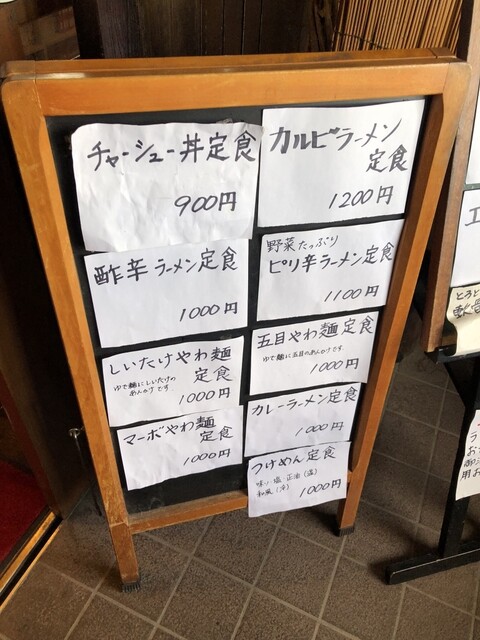 チャーシュー丼定食
900円
酢辛ラーメン定食
1000円
しいたけやわ麺
定食
ゆで麺にしいたけの
あんかけです
1000円
マーボやわ麺
定食
1000円
カルビラーメン
定食
1200円
野菜たっぷり
ピリ辛ラーメン定食
1100円
五目やわ麺定食
ゆで麺に五目のあんかけです
1000円
カレーラーメン定食
1000円
つけめん定食
味ソ・塩・正油(温)
和風(冷)
1000円